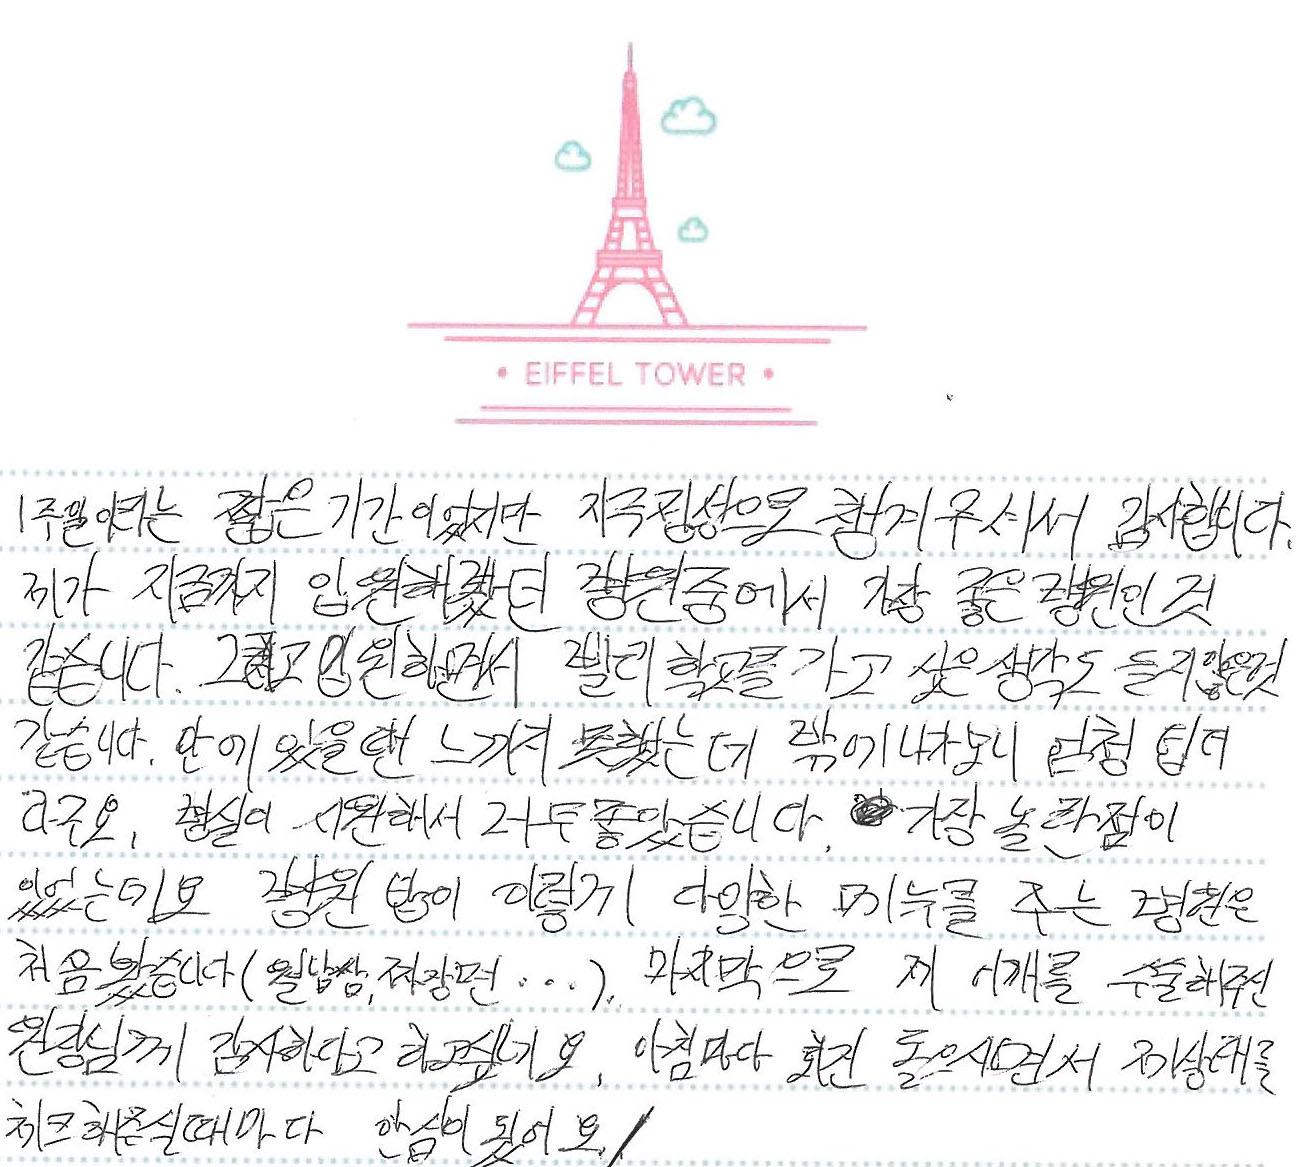 • EIFFEL TOWER •
1주일이라는 짧은 기간이었지만 지극정성으로 챙겨주셔서 감사합니다.
제가 지금까지 입원해봤던 병원중에서 가장 좋은 병원인 것
같습니다. 그리고 입원하면서 빨리 학교를 가고 싶은 생각도 들지않은것
같습니다. 안에 있을땐 느끼져 못했는데 밖에 나가보니 엄청 덥더
라구요, 병실이 시원해서 너무 좋았습니다. 가장 놀란점이
있었는데요 병원 밥이 이렇게 다양한 메뉴를 주는 병원은
처음봤습니다(월남쌈, 짜장면 ...). 마지막으로 제 어깨를 수술해주신
원장님께 감사하다고 하고싶네요, 아침마다 회진 돌으시면서 제상태를
체크해주실때마다 안심이 됬어요!